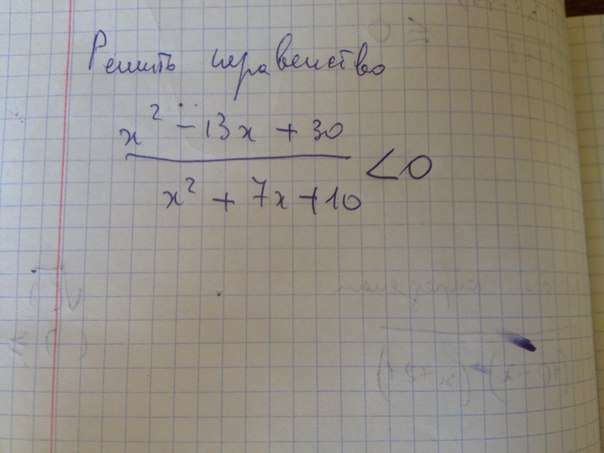 Решить неравенство
x² - 13x + 30
x² + 7x + 10
< 0